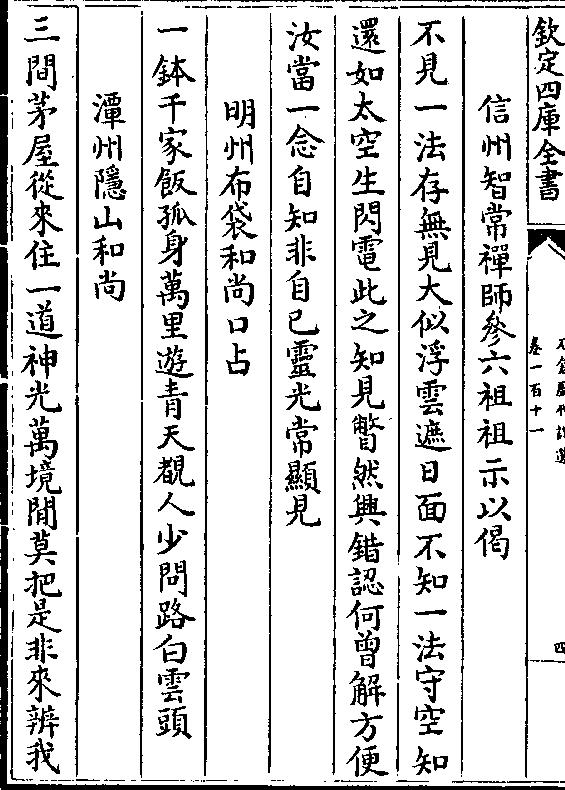 欽定四庫全書
卷一百十一
四
信州智常禪師參六祖祖示以偈
不見一法存無見大似浮雲遮日面不知一法守空知
還如太空生閃電此之知見瞥然興錯認何曾解方便
汝當一念自知非自已靈光常顯見
明州布袋和尚口占
一鉢千家飯孤身萬里遊青天覩人少問路白雲頭
潭州隱山和尚
三間茅屋從來住一道神光萬境閒莫把是非來辨我